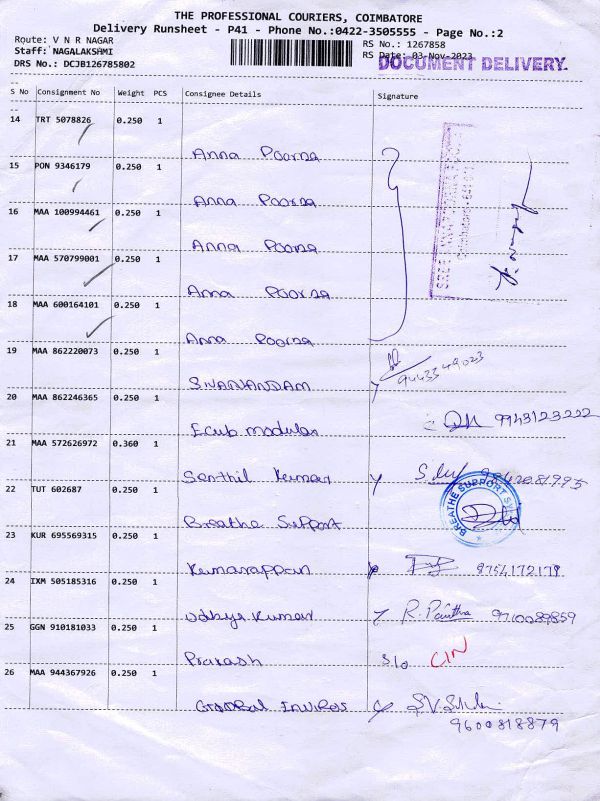 THE PROFESSIONAL COURIERS, COIMBATORE
Delivery Runsheet - P41 - Phone No.:0422-3505555 - Page No.:2
Route: V N R NAGAR
Staff: NAGALAKSAMI
DRS No.: DCJB126785802
RS No.: 1267858
RS Date: 03-Nov-2023
DOCUMENT DELIVERY.
S No Consignment No Weight PCS Consignee Details Signature
14 TRT 5078826 0.250 1
Anna Poorna
15 PON 9346179 0.250 1
Anna Poorna
16 MAA 100994461 0.250 1
Anna Poorna
17 MAA 570799001 0.250 1
Anna Poorna
18 MAA 600164101 0.250 1
Anna Poorna
19 MAA 862220073 0.250 1
SIVANANDAM 9443349023
20 MAA 862246365 0.250 1
Ecub modular 9943123222
21 MAA 572626972 0.360 1
Senthil Kumar 9842081995
22 TUT 602687 0.250 1
Breathe Support
BREATHE SUPPORT
23 KUR 695569315 0.250 1
Kumarappan 9754172179
24 IXM 505185316 0.250 1
Udhya Kumar R. Pavithra 9710089859
25 GGN 910181033 0.250 1
Prakash S/o CIN
26 MAA 944367926 0.250 1
Global
9600818879